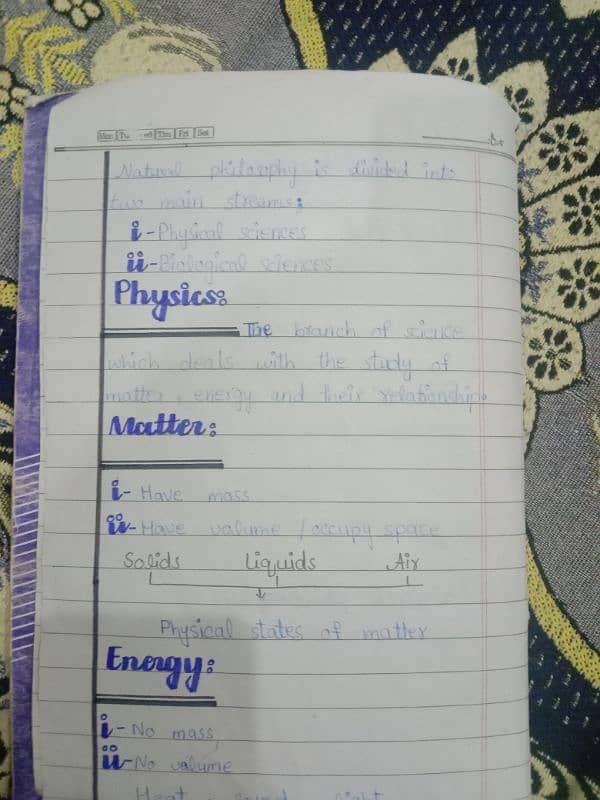 Mon Tu Wed Thu Fri Sat
Natural philosophy is divided into
two main streams:
i-Physical sciences
ii-Biological sciences
Physics:
The branch of science
which deals with the study of
matter, energy and their relationship.
Matter:
i- Have mass
ii- Have volume / occupy space
Solids Liquids Air
Physical states of matter
Energy:
i- No mass
ii- No volume
Heat, sound, light